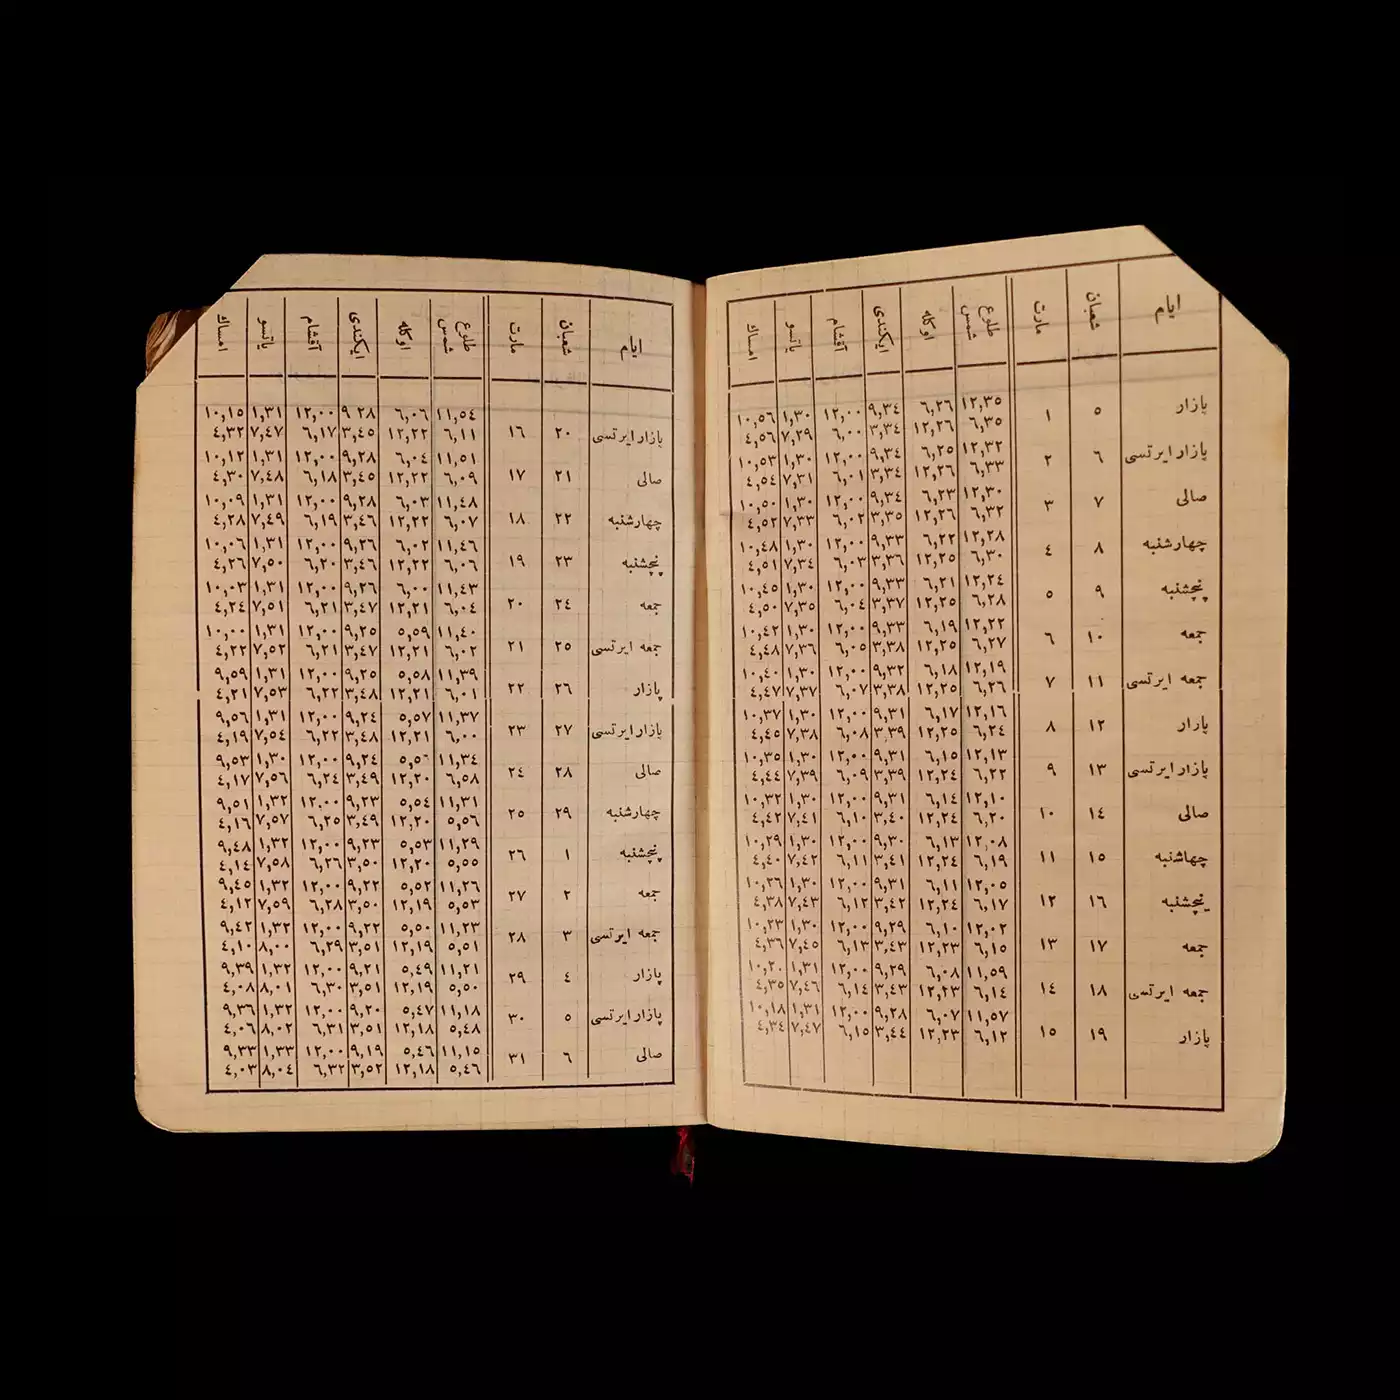 ایام شعبان مارت طلوع شمس اوكله ایكندی آقشام یاتسو امساك
پازار ٥ ١ ١٢,٣٥ ٦,٢٦ ٩,٣٤ ١٢,٠٠ ١,٣٠ ١٠,٥٦
٦,٣٥ ١٢,٢٦ ٣,٣٤ ٦,٠٠ ٧,٢٩ ٤,٥٦
پازار ایرتسی ٦ ٢ ١٢,٣٢ ٦,٢٥ ٩,٣٤ ١٢,٠٠ ١,٣٠ ١٠,٥٣
٦,٣٣ ١٢,٢٦ ٣,٣٤ ٦,٠١ ٧,٣١ ٤,٥٤
صالی ٧ ٣ ١٢,٣٠ ٦,٢٣ ٩,٣٤ ١٢,٠٠ ١,٣٠ ١٠,٥٠
٦,٣٢ ١٢,٢٦ ٣,٣٥ ٦,٠٢ ٧,٣٣ ٤,٥٢
چهارشنبه ٨ ٤ ١٢,٢٨ ٦,٢٢ ٩,٣٣ ١٢,٠٠ ١,٣٠ ١٠,٤٨
٦,٣٠ ١٢,٢٥ ٣,٣٦ ٦,٠٣ ٧,٣٤ ٤,٥١
پنچشنبه ٩ ٥ ١٢,٢٤ ٦,٢١ ٩,٣٣ ١٢,٠٠ ١,٣٠ ١٠,٤٥
٦,٢٨ ١٢,٢٥ ٣,٣٧ ٦,٠٤ ٧,٣٥ ٤,٥٠
جمعه ١٠ ٦ ١٢,٢٢ ٦,١٩ ٩,٣٣ ١٢,٠٠ ١,٣٠ ١٠,٤٢
٦,٢٧ ١٢,٢٥ ٣,٣٨ ٦,٠٥ ٧,٣٦ ٤,٤٨
جمعه ایرتسی ١١ ٧ ١٢,١٩ ٦,١٨ ٩,٣٢ ١٢,٠٠ ١,٣٠ ١٠,٤٠
٦,٢٦ ١٢,٢٥ ٣,٣٨ ٦,٠٧ ٧,٣٧ ٤,٤٧
پازار ١٢ ٨ ١٢,١٦ ٦,١٧ ٩,٣١ ١٢,٠٠ ١,٣٠ ١٠,٣٧
٦,٢٤ ١٢,٢٥ ٣,٣٩ ٦,٠٨ ٧,٣٨ ٤,٤٥
پازار ایرتسی ١٣ ٩ ١٢,١٣ ٦,١٥ ٩,٣١ ١٢,٠٠ ١,٣٠ ١٠,٣٥
٦,٢٢ ١٢,٢٤ ٣,٣٩ ٦,٠٩ ٧,٣٩ ٤,٤٤
صالی ١٤ ١٠ ١٢,١٠ ٦,١٤ ٩,٣١ ١٢,٠٠ ١,٣٠ ١٠,٣٢
٦,٢٠ ١٢,٢٤ ٣,٤٠ ٦,١٠ ٧,٤١ ٤,٤٢
چهاشنبه ١٥ ١١ ١٢,٠٨ ٦,١٣ ٩,٣٠ ١٢,٠٠ ١,٣٠ ١٠,٢٩
٦,١٩ ١٢,٢٤ ٣,٤١ ٦,١١ ٧,٤٢ ٤,٤٠
پنچشنبه ١٦ ١٢ ١٢,٠٥ ٦,١١ ٩,٣١ ١٢,٠٠ ١,٣٠ ١٠,٢٦
٦,١٧ ١٢,٢٤ ٣,٤٢ ٦,١٢ ٧,٤٣ ٤,٣٨
جمعه ١٧ ١٣ ١٢,٠٢ ٦,١٠ ٩,٢٩ ١٢,٠٠ ١,٣٠ ١٠,٢٣
٦,١٥ ١٢,٢٣ ٣,٤٣ ٦,١٣ ٧,٤٥ ٤,٣٦
جمعه ایرتسی ١٨ ١٤ ١١,٥٩ ٦,٠٨ ٩,٢٩ ١٢,٠٠ ١,٣١ ١٠,٢٠
٦,١٤ ١٢,٢٣ ٣,٤٣ ٦,١٤ ٧,٤٦ ٤,٣٥
پازار ١٩ ١٥ ١١,٥٧ ٦,٠٧ ٩,٢٨ ١٢,٠٠ ١,٣١ ١٠,١٨
٦,١٢ ١٢,٢٣ ٣,٤٤ ٦,١٥ ٧,٤٧ ٤,٣٤
ایام شعبان مارت طلوع شمس اوكله ایكندی آقشام یاتسو امساك
پازار ایرتسی ٢٠ ١٦ ١١,٥٤ ٦,٠٦ ٩ ٢٨ ١٢,٠٠ ١,٣١ ١٠,١٥
٦,١١ ١٢,٢٢ ٣,٤٥ ٦,١٧ ٧,٤٧ ٤,٣٢
صالی ٢١ ١٧ ١١,٥١ ٦,٠٤ ٩,٢٨ ١٢,٠٠ ١,٣١ ١٠,١٢
٦,٠٩ ١٢,٢٢ ٣,٤٥ ٦,١٨ ٧,٤٨ ٤,٣٠
چهارشنبه ٢٢ ١٨ ١١,٤٨ ٦,٠٣ ٩,٢٨ ١٢,٠٠ ١,٣١ ١٠,٠٩
٦,٠٧ ١٢,٢٢ ٣,٤٦ ٦,١٩ ٧,٤٩ ٤,٢٨
پنچشنبه ٢٣ ١٩ ١١,٤٦ ٦,٠٢ ٩,٢٦ ١٢,٠٠ ١,٣١ ١٠,٠٦
٦,٠٦ ١٢,٢٢ ٣,٤٦ ٦,٢٠ ٧,٥٠ ٤,٢٦
جمعه ٢٤ ٢٠ ١١,٤٣ ٦,٠٠ ٩,٢٦ ١٢,٠٠ ١,٣١ ١٠,٠٣
٦,٠٤ ١٢,٢١ ٣,٤٧ ٦,٢١ ٧,٥١ ٤,٢٤
جمعه ایرتسی ٢٥ ٢١ ١١,٤٠ ٥,٥٩ ٩,٢٥ ١٢,٠٠ ١,٣١ ١٠,٠٠
٦,٠٢ ١٢,٢١ ٣,٤٧ ٦,٢١ ٧,٥٢ ٤,٢٢
پازار ٢٦ ٢٢ ١١,٣٩ ٥,٥٨ ٩,٢٥ ١٢,٠٠ ١,٣١ ٩,٥٩
٦,٠١ ١٢,٢١ ٣,٤٨ ٦,٢٢ ٧,٥٣ ٤,٢١
پازار ایرتسی ٢٧ ٢٣ ١١,٣٧ ٥,٥٧ ٩,٢٤ ١٢,٠٠ ١,٣١ ٩,٥٦
٦,٠٠ ١٢,٢١ ٣,٤٨ ٦,٢٢ ٧,٥٤ ٤,١٩
صالی ٢٨ ٢٤ ١١,٣٤ ٩,٢٤ ١٢,٠٠ ١,٣٠ ٩,٥٣
٦,٥٨ ١٢,٢٠ ٣,٤٩ ٦,٢٤ ٧,٥٦ ٤,١٧
چهارشنبه ٢٩ ٢٥ ١١,٣١ ٥,٥٤ ٩,٢٣ ١٢,٠٠ ١,٣٢ ٩,٥١
٥,٥٦ ١٢,٢٠ ٣,٤٩ ٦,٢٥ ٧,٥٧ ٤,١٦
پنچشنبه ١ ٢٦ ١١,٢٩ ٥,٥٣ ٩,٢٣ ١٢,٠٠ ١,٣٢ ٩,٤٨
٥,٥٥ ١٢,٢٠ ٣,٥٠ ٦,٢٦ ٧,٥٨ ٤,١٤
جمعه ٢ ٢٧ ١١,٢٦ ٥,٥٢ ٩,٢٢ ١٢,٠٠ ١,٣٢ ٩,٤٥
٥,٥٣ ١٢,١٩ ٣,٥٠ ٦,٢٨ ٧,٥٩ ٤,١٢
جمعه ایرتسی ٣ ٢٨ ١١,٢٣ ٥,٥٠ ٩,٢٢ ١٢,٠٠ ١,٣٢ ٩,٤٢
٥,٥١ ١٢,١٩ ٣,٥١ ٦,٢٩ ٨,٠٠ ٤,١٠
پازار ٤ ٢٩ ١١,٢١ ٥,٤٩ ٩,٢١ ١٢,٠٠ ١,٣٢ ٩,٣٩
٥,٥٠ ١٢,١٩ ٣,٥١ ٦,٣٠ ٨,٠١ ٤,٠٨
پازار ایرتسی ٥ ٣٠ ١١,١٨ ٥,٤٧ ٩,٢٠ ١٢,٠٠ ١,٣٢ ٩,٣٦
٥,٤٨ ١٢,١٨ ٣,٥١ ٦,٣١ ٨,٠٢ ٤,٠٦
صالی ٦ ٣١ ١١,١٥ ٥,٤٦ ٩,١٩ ١٢,٠٠ ١,٣٣ ٩,٣٣
٥,٤٦ ١٢,١٨ ٣,٥٢ ٦,٣٢ ٨,٠٤ ٤,٠٣